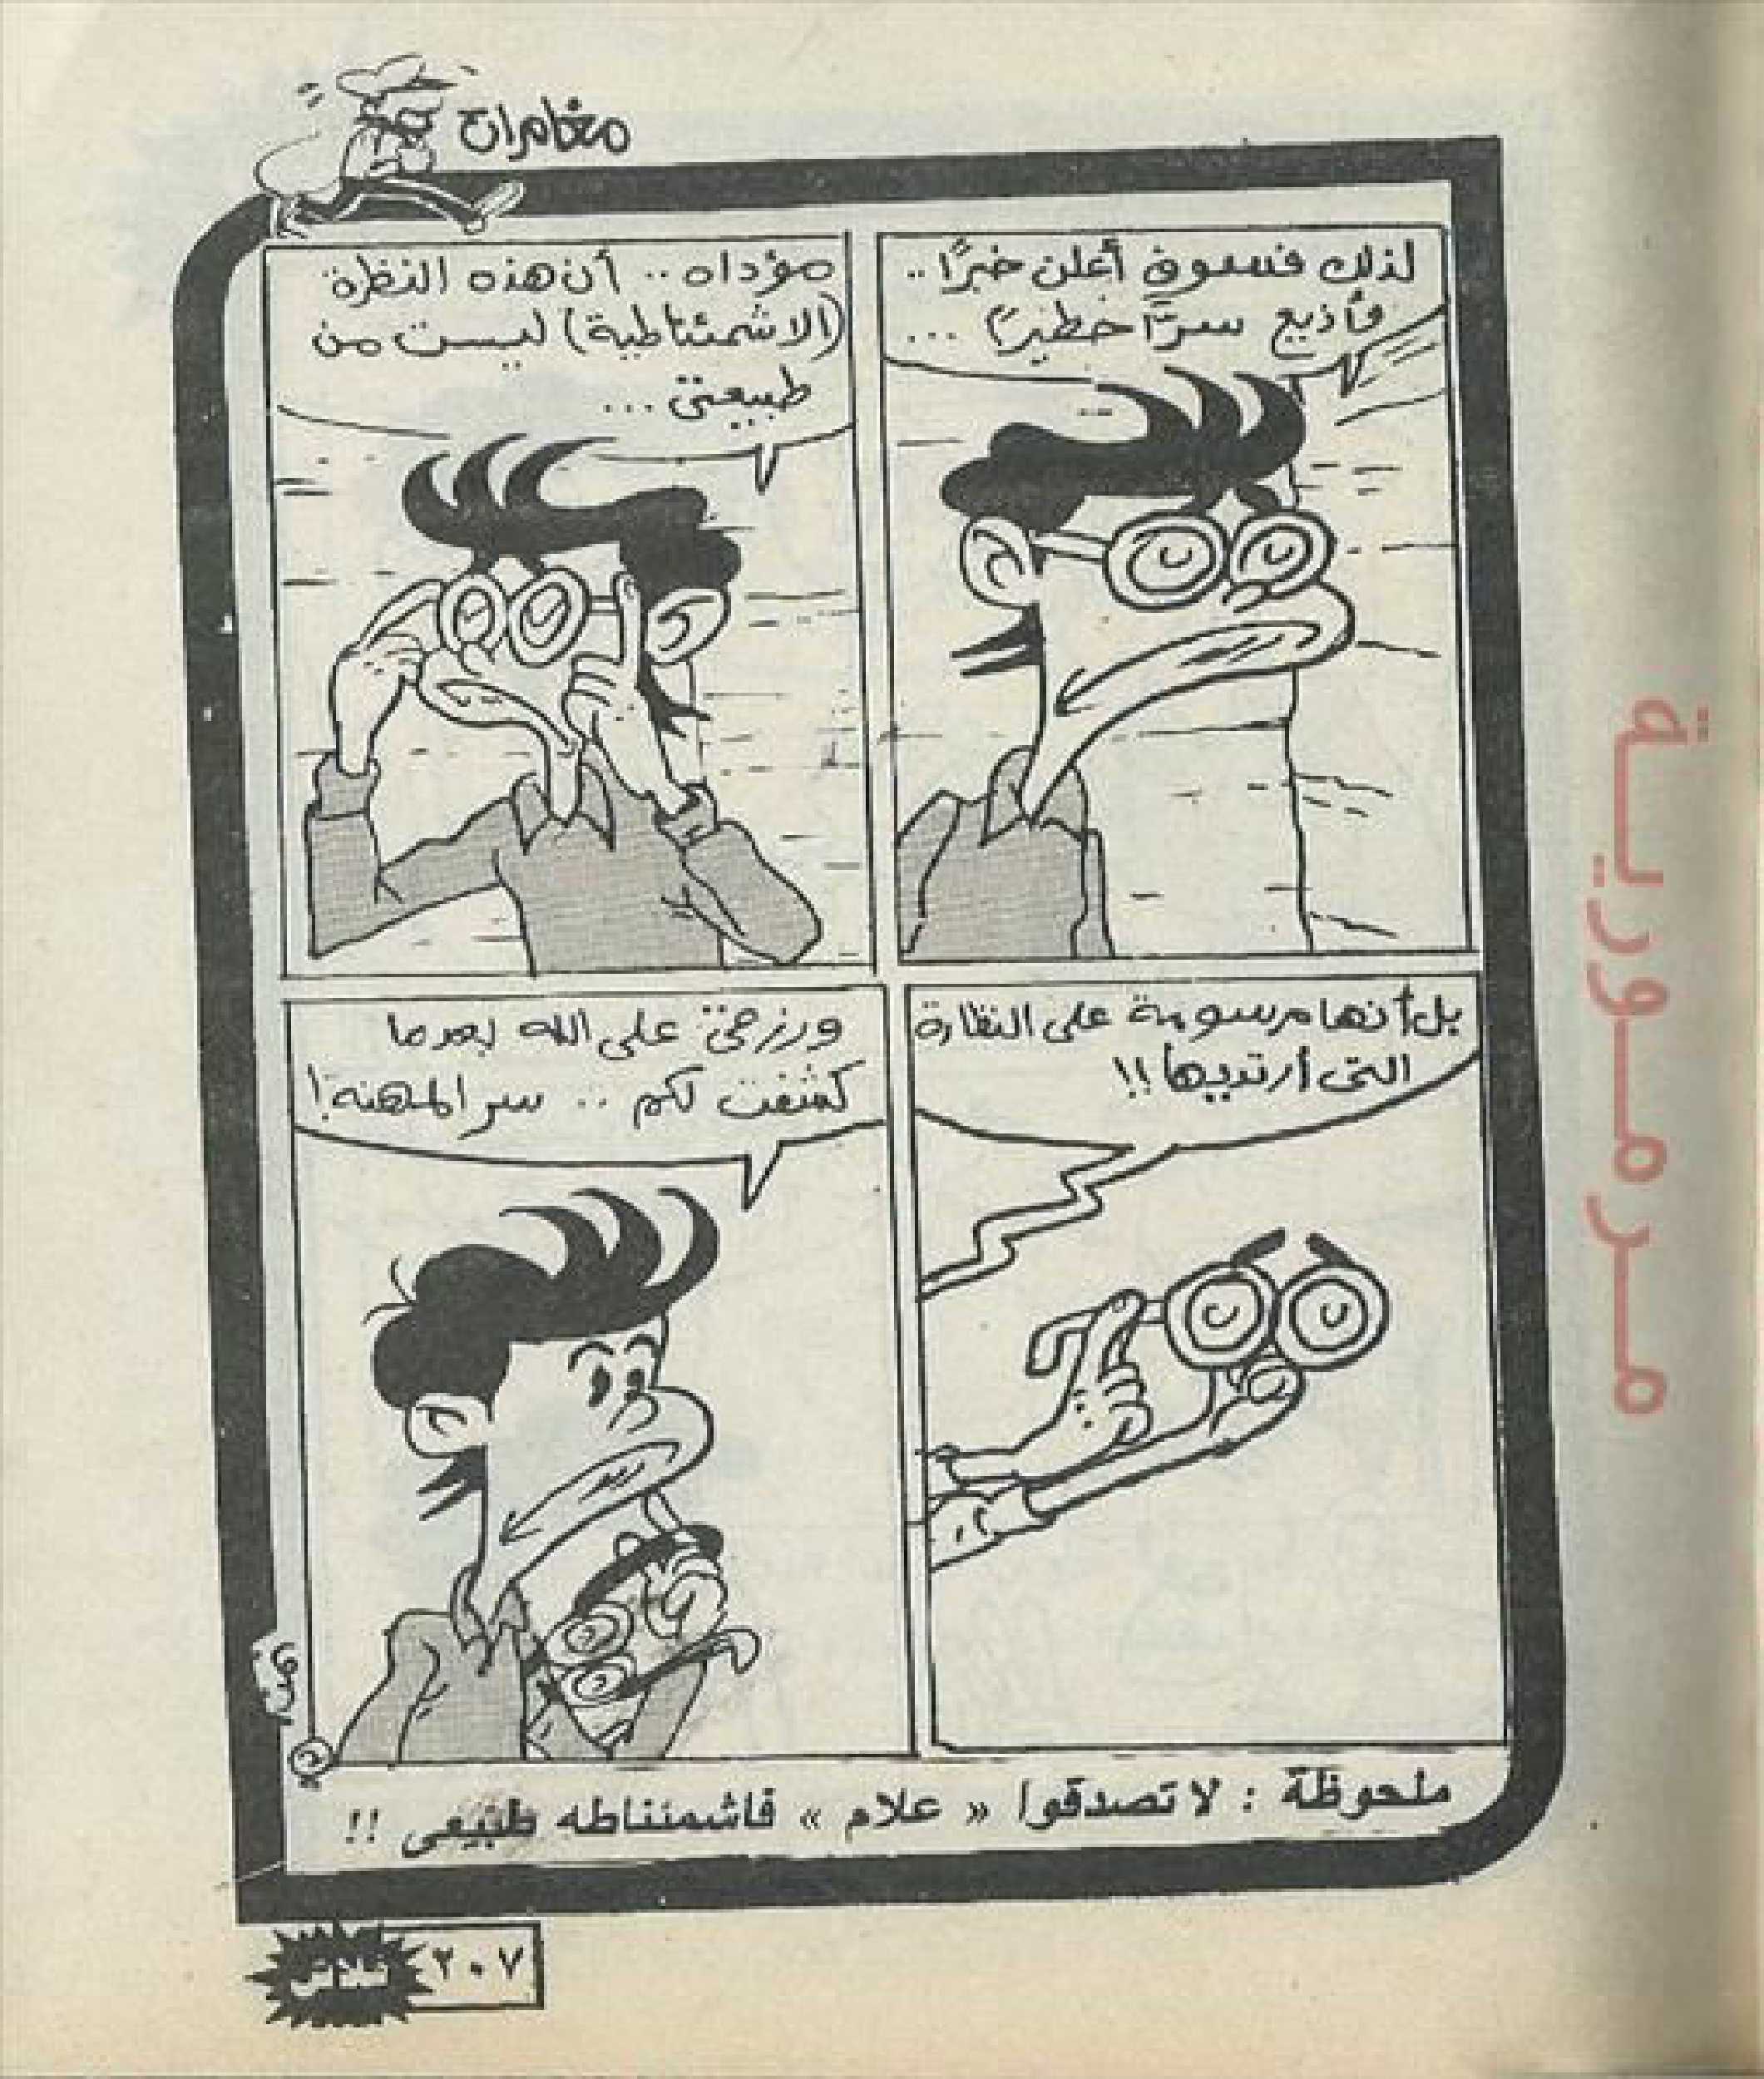 مغامرات
لذلك فسوف أعلن خبرًا..
وأذيع سرًّا خطيرًا ...
مؤداه .. أن هذه النظرة
(الاشمئناطية) ليست من
طبيعتى ...
بل أنها مرسومة على النظارة
التى أرتديها !!
ورزقى على الله بعدما
كشفت لكم .. سر المهنة !
ملحوظة : لا تصدقوا « علام » فاشمئناطه طبيعى !!
٢٠٧
فلاش
مرمورية